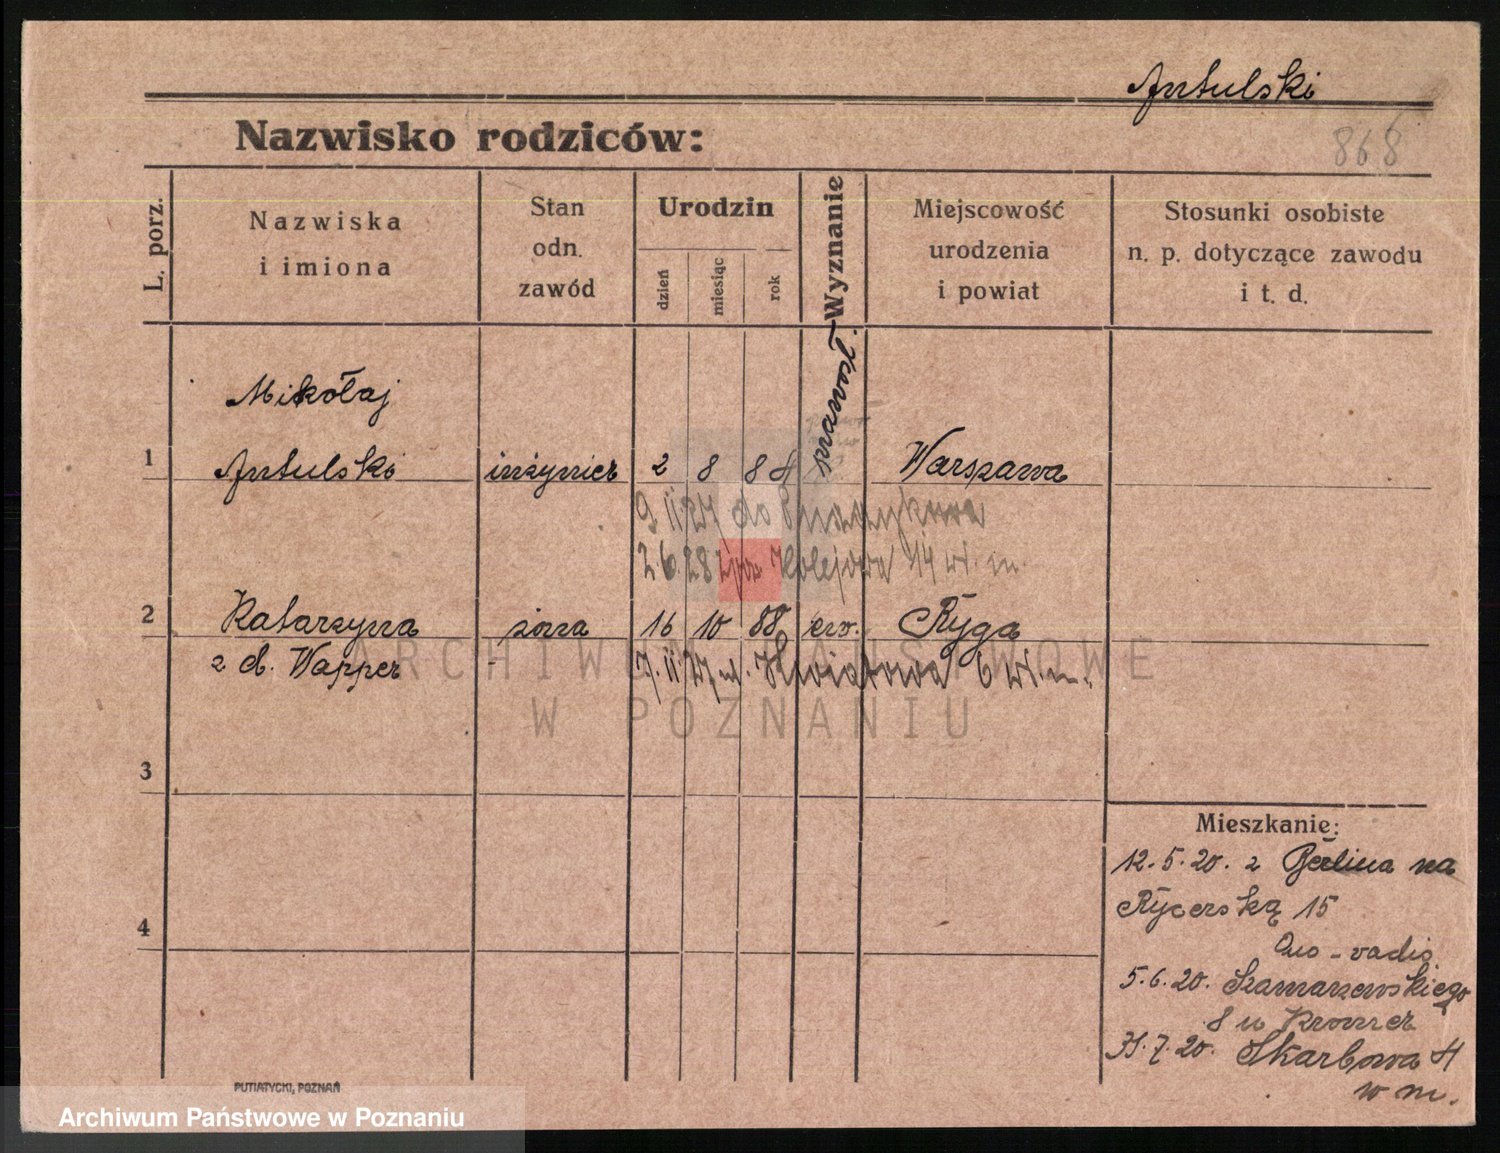 Antulski
Nazwisko rodziców:
868
L. porz.
Nazwiska
i imiona
Stan
odn.
zawód
Urodzin
dzień
miesiąc
rok
Wyznanie
Miejscowość
urodzenia
i powiat
Stosunki osobiste
n. p. dotyczące zawodu
i t. d.
Mikołaj
1 Antulski inżynier 2 8 84 prawosł. Warszawa
9 II 27 do
2.6.28 Kolejowa 14 wł. m.
2 Katarzyna żona 16 10 88 ew. Ryga
z d. Wapper - 7. II. 27 ul. Kwiatowa 6 wł. m.
ARCHIWUM PAŃSTWOWE
W POZNANIU
3
4
Mieszkanie:
12.5.20. z Berlina na
Rycerską 15
Quo-vadis
5.6.20. Szamarzewskiego
8 u Kromer
31.7.20. Skarbowa 4
w m.
PUTIATYCKI, POZNAŃ
Archiwum Państwowe w Poznaniu